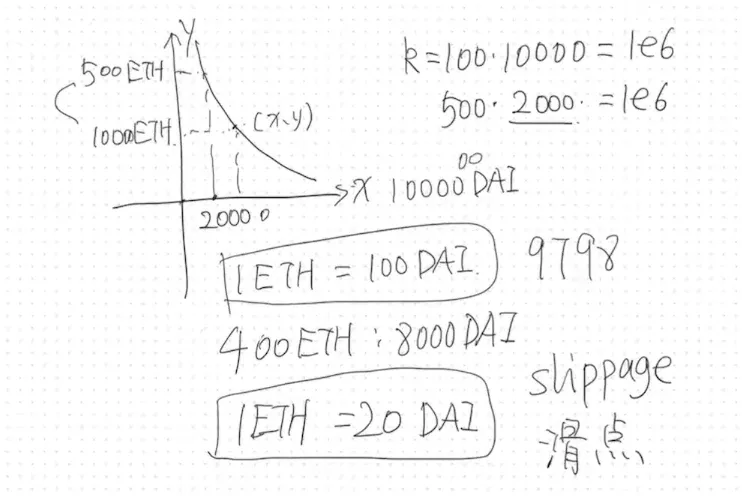 Y
500ETH
1000ETH
(x,y)
x
10000
00
DAI
20000
k=100·10000=1e6
500·2000·=1e6
1ETH=100DAI.
9798
400ETH:8000DAI
slippage
1ETH=20 DAI
滑点